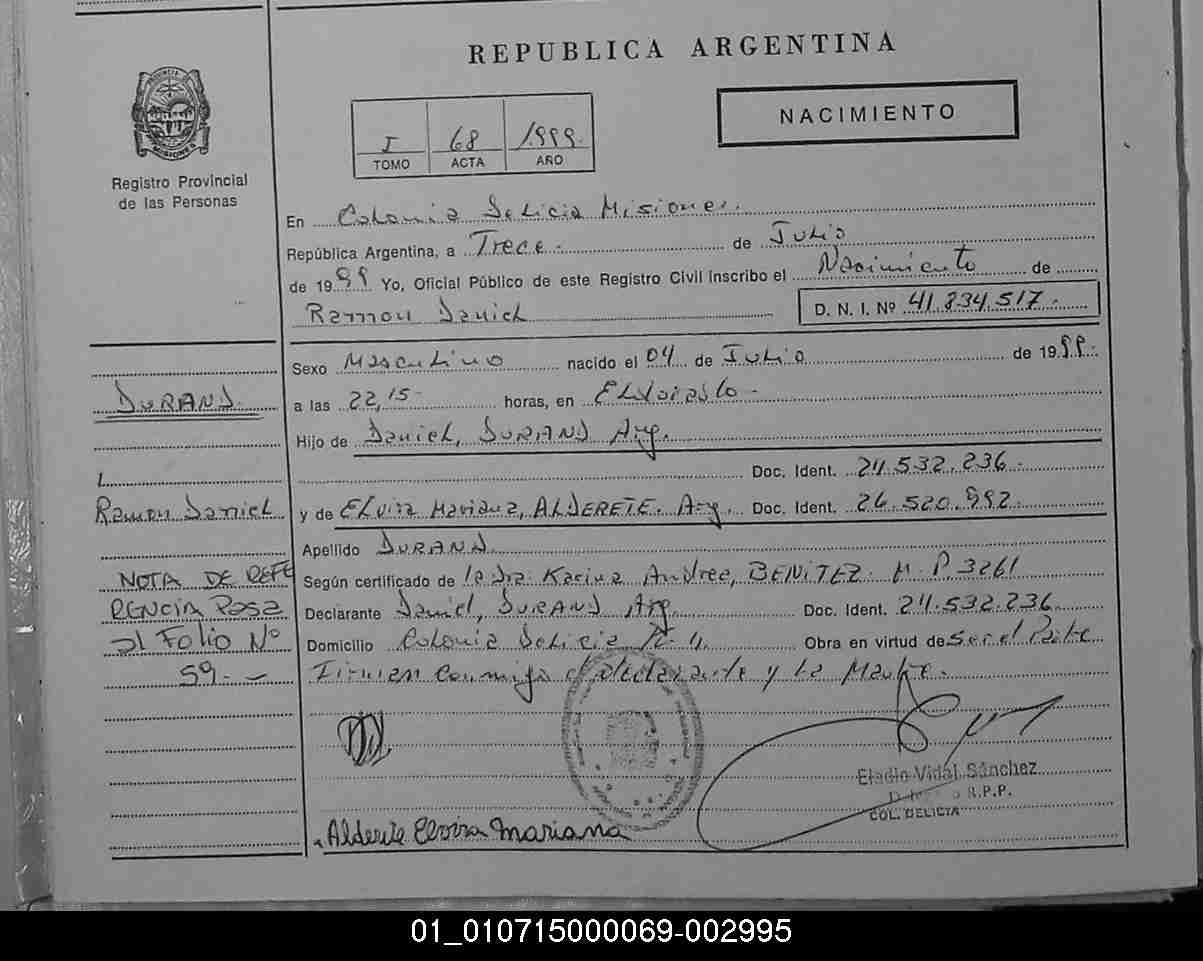 REPUBLICA ARGENTINA
NACIMIENTO
I 68 1.999.
TOMO ACTA AÑO
PROVINCIA DE
MISIONES
Registro Provincial
de las Personas
En Colonia Delicia Misiones.
República Argentina, a Trece.- de Julio
de 1999 Yo, Oficial Público de este Registro Civil inscribo el Nacimiento de
Ramon Daniel D. N. I. Nº 41.834.517.-
Sexo Masculino nacido el 04 de Julio de 1999.-
DURAND.
a las 22,15- horas, en Eldorado.-
Hijo de Daniel, DURAND Arg.
Doc. Ident. 24.532.236.-
Ramon Daniel
y de Elvira Mariana, ALDERETE. Arg. Doc. Ident. 26.520.992.-
Apellido DURAND.
NOTA DE REFE
RENCIA Pasa
al Folio Nº
59.-
Según certificado de la dra. Karina Andrea, BENITEZ. M.P. 3261
Declarante Daniel, DURAND Arg. Doc. Ident. 24.532.236
Domicilio Colonia Delicia K-4. Obra en virtud de Ser el Padre
Firman Conmigo el declarante y La Madre.-
Eladio Vidal Sánchez
R.P.P.
COL. DELICIA
Alderete Elvira Mariana
01_010715000069-002995